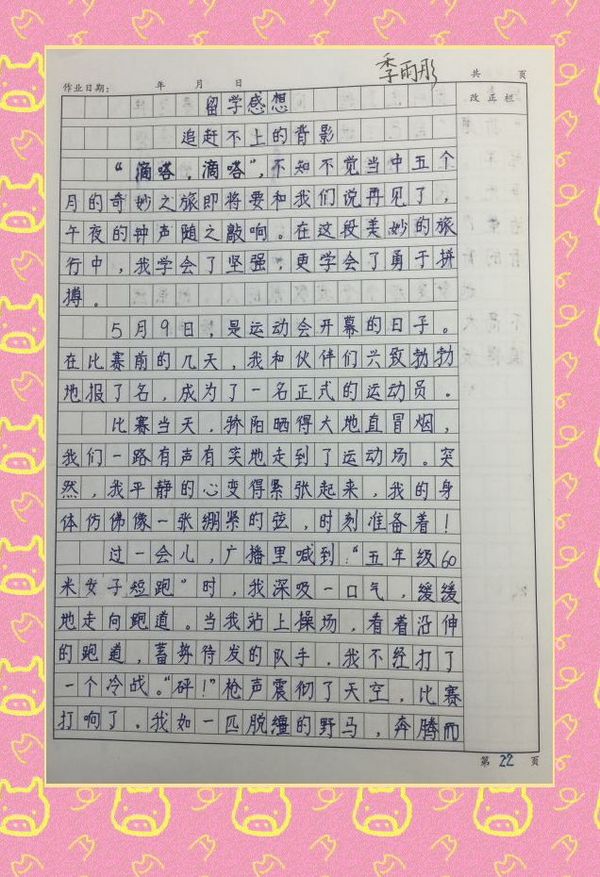 季雨彤
作业日期： 年 月 日 共 页
改正栏
留学感想
追赶不上的背影
“滴嗒，滴嗒”，不知不觉当中五个
月的奇妙之旅即将要和我们说再见了，
午夜的钟声随之敲响。在这段美妙的旅
行中，我学会了坚强，更学会了勇于拼
搏。
5月9日，是运动会开幕的日子。
在比赛前的几天，我和伙伴们兴致勃勃
地报了名，成为了一名正式的运动员。
比赛当天，骄阳晒得大地直冒烟，
我们一路有声有笑地走到了运动场。突
然，我平静的心变得紧张起来，我的身
体仿佛像一张绷紧的弦，时刻准备着！
过一会儿，广播里喊到：“五年级60
米女子短跑”时，我深吸一口气，缓缓
地走向跑道。当我站上操场，看着沿伸
的跑道，蓄势待发的队手，我不经打了
一个冷战。“砰！”枪声震彻了天空，比赛
打响了。我如一匹脱缰的野马，奔腾而
第 22 页